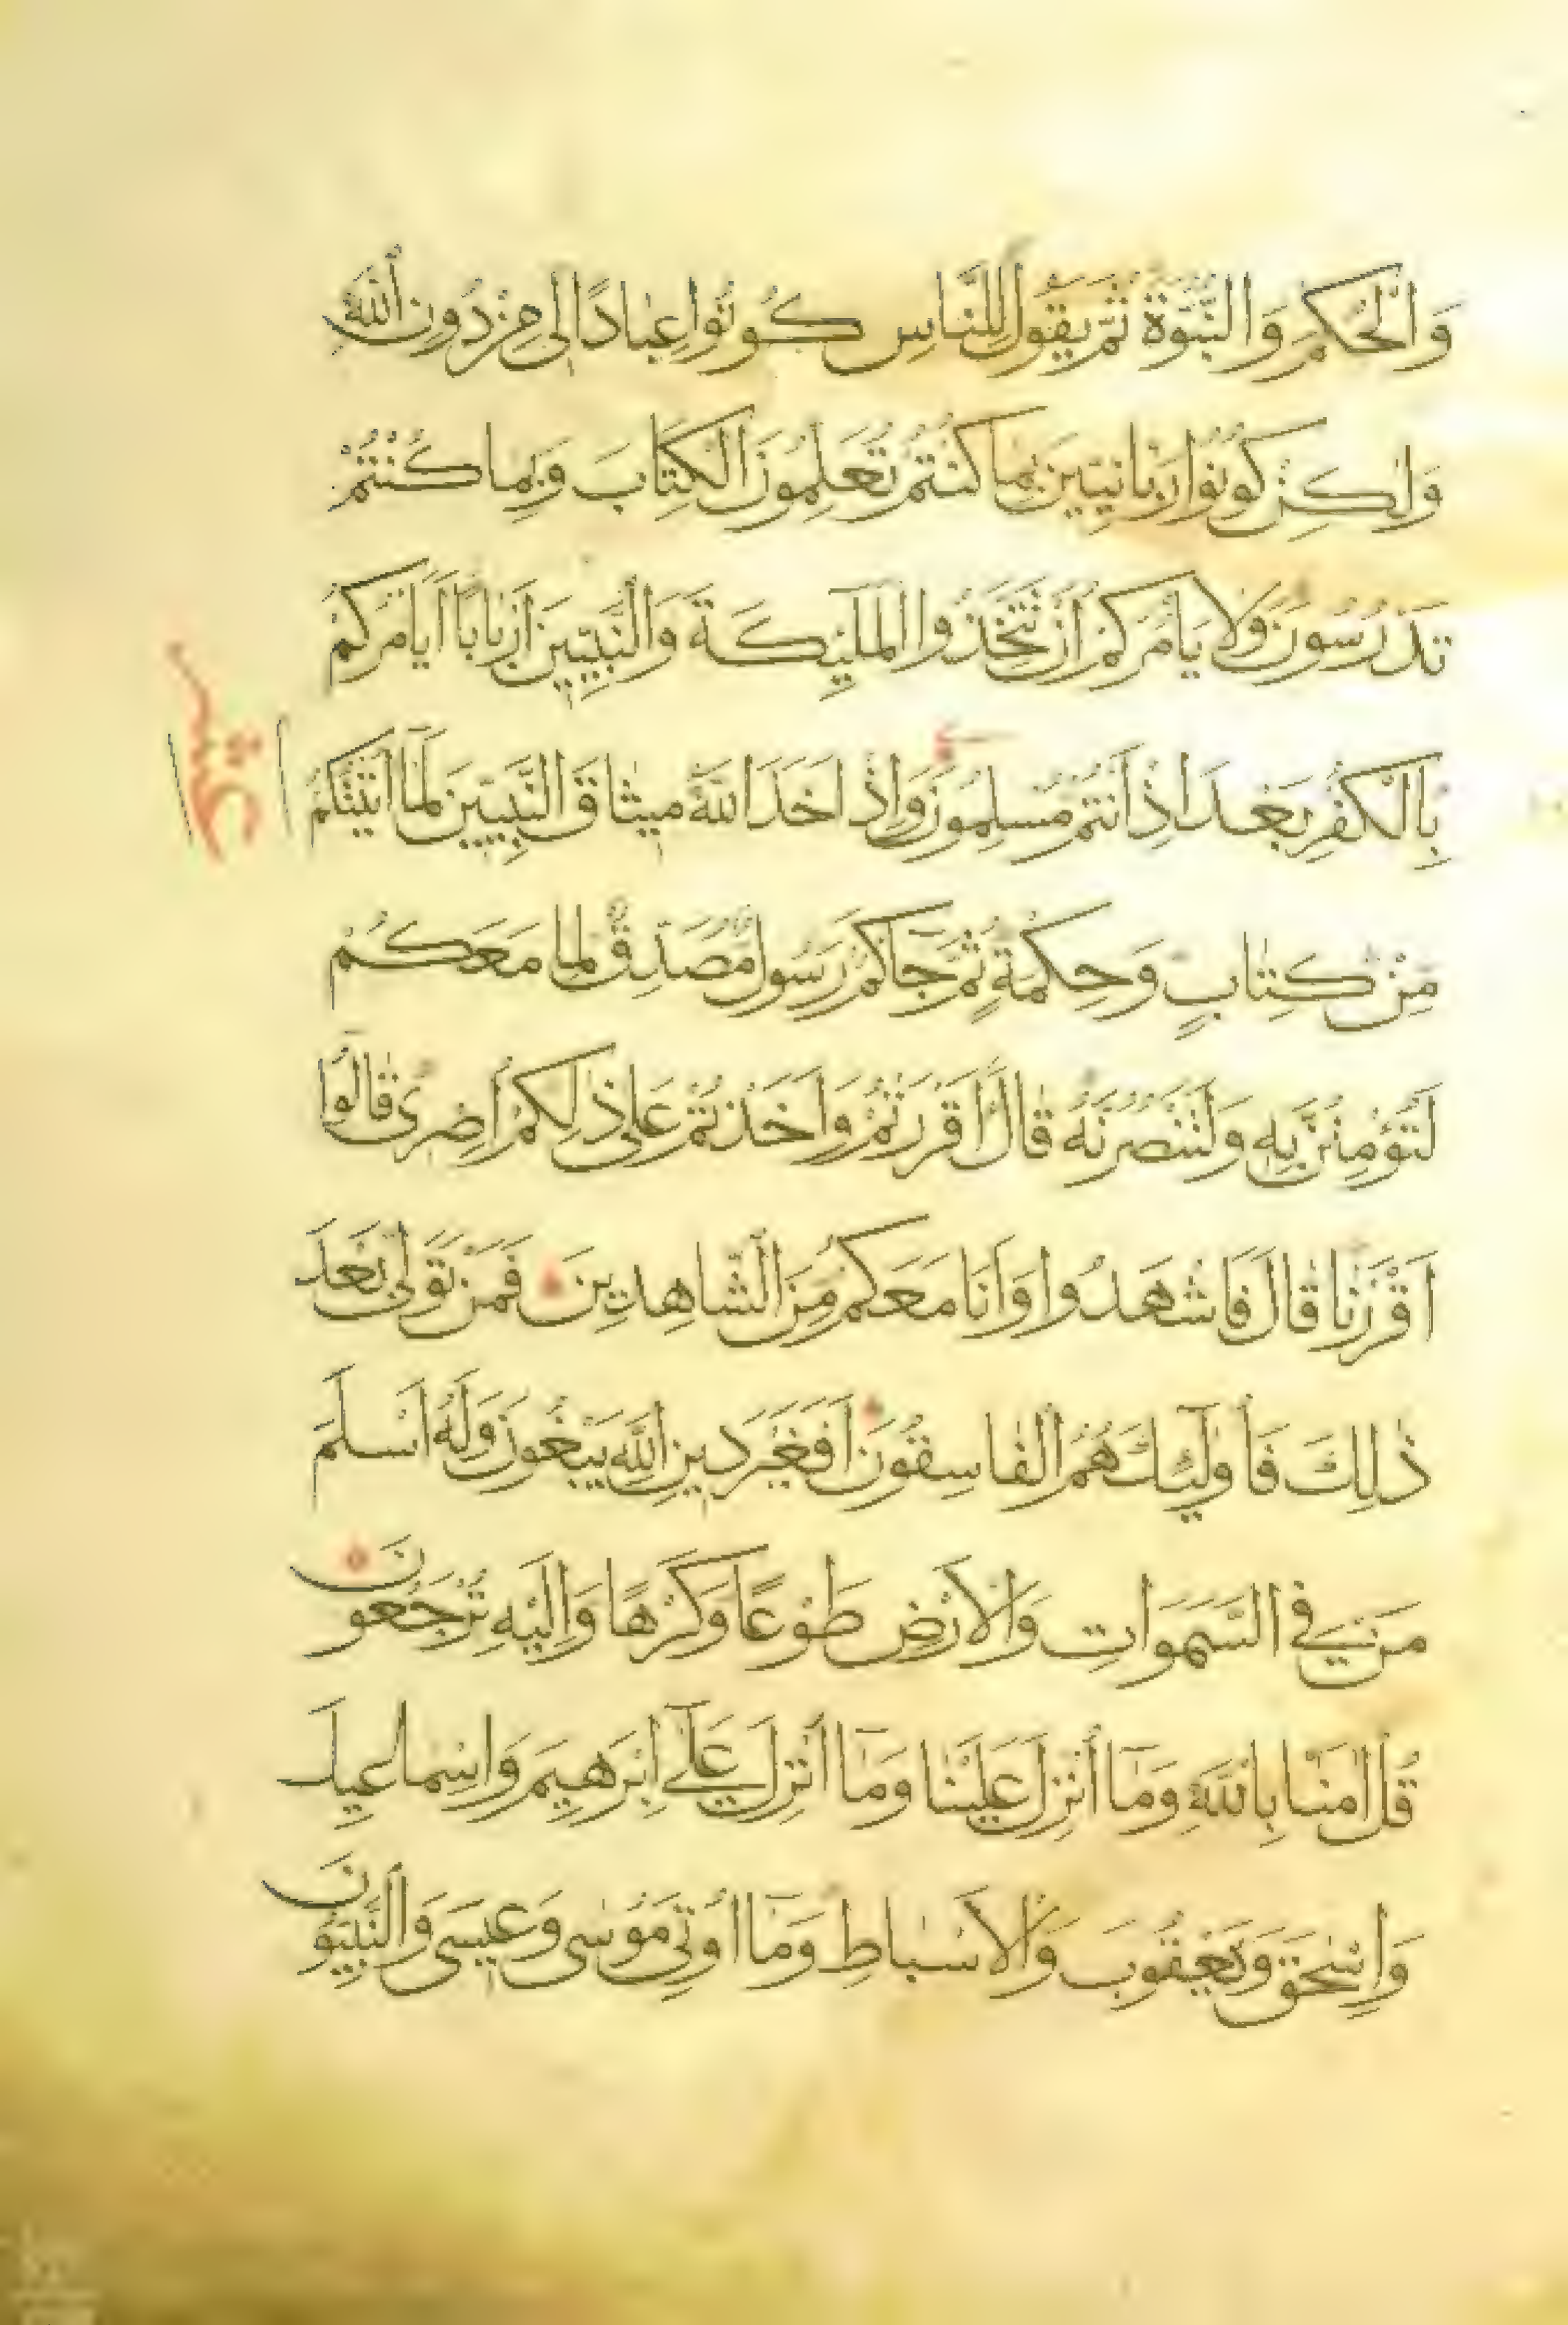 وَالْحُكْمَ وَالنُّبُوَّةَ ثُمَّ يَقُولَ لِلنَّاسِ كُونُوا عِبَادًا لِى مِنْ دُونِ اللَّهِ
وَلٰكِنْ كُونُوا رَبَّانِيِّينَ بِمَا كُنْتُمْ تُعَلِّمُونَ الْكِتَابَ وَبِمَا كُنْتُمْ
تَدْرُسُونَ وَلَا يَأْمُرَكُمْ أَنْ تَتَّخِذُوا الْمَلٰئِكَةَ وَالنَّبِيِّينَ أَرْبَابًا أَيَأْمُرُكُمْ
بِالْكُفْرِ بَعْدَ إِذْ أَنْتُمْ مُسْلِمُونَ وَإِذْ أَخَذَ اللَّهُ مِيثَاقَ النَّبِيِّينَ لَمَا آتَيْتُكُمْ
عشر
مِنْ كِتَابٍ وَحِكْمَةٍ ثُمَّ جَاكُمْ رَسُولٌ مُصَدِّقٌ لِمَا مَعَكُمْ
لَتُؤْمِنُنَّ بِهِ وَلَتَنْصُرُنَّهُ قَالَ أَأَقْرَرْتُمْ وَأَخَذْتُمْ عَلَى ذٰلِكُمْ إِصْرِى قَالُوا
أَقْرَرْنَا قَالَ فَاشْهَدُوا وَأَنَا مَعَكُمْ مِنَ الشَّاهِدِينَ فَمَنْ تَوَلَّى بَعْدَ
ذٰلِكَ فَأُولٰئِكَ هُمُ الْفَاسِقُونَ أَفَغَيْرَ دِينِ اللَّهِ يَبْغُونَ وَلَهُ أَسْلَمَ
مَنْ فِي السَّمٰوَاتِ وَالْأَرْضِ طَوْعًا وَكَرْهًا وَإِلَيْهِ تُرْجَعُونَ
قُلْ آمَنَّا بِاللَّهِ وَمَا أُنْزِلَ عَلَيْنَا وَمَا أُنْزِلَ عَلَى إِبْرَهِيمَ وَإِسْمَاعِيلَ
وَإِسْحَقَ وَيَعْقُوبَ وَالْأَسْبَاطِ وَمَا أُوتِيَ مُوسَى وَعِيسَى وَالنَّبِيُّونَ